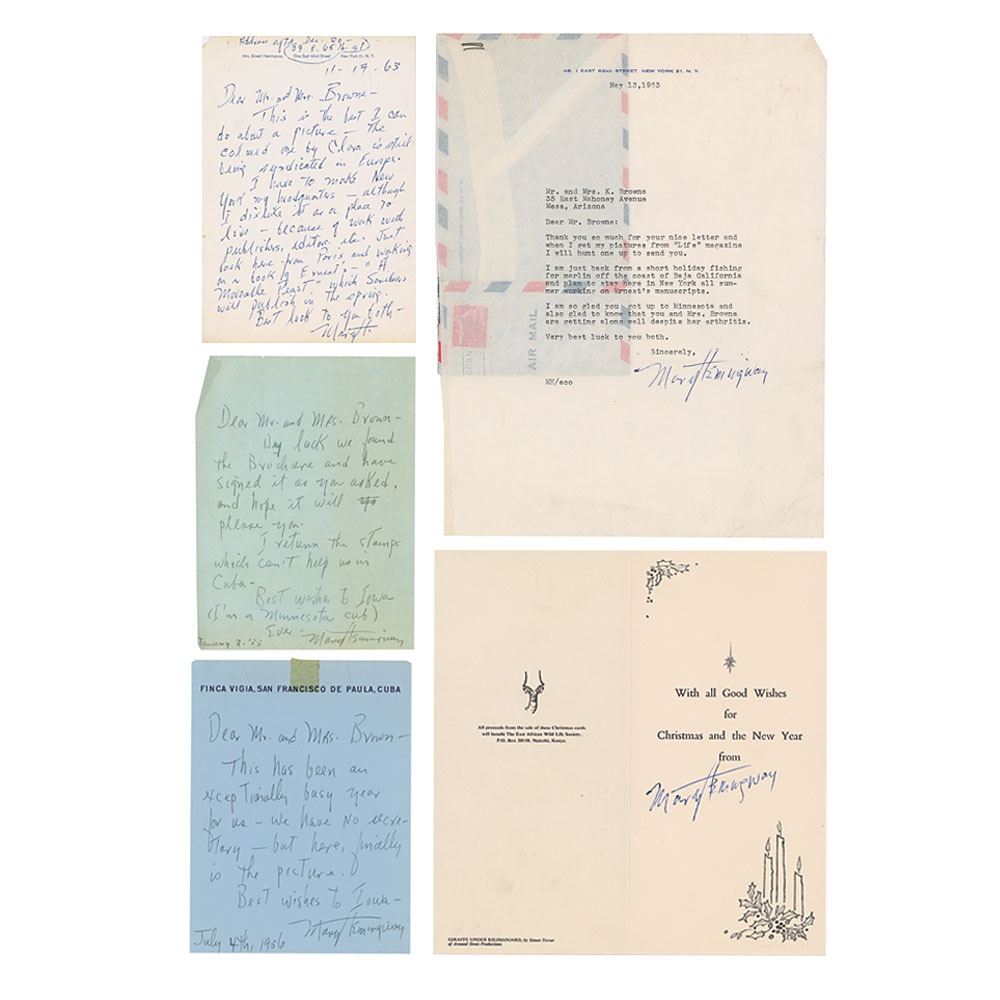 Address after Dec. 20 -
39 E. 65th St
Mrs. Ernest Hemingway One East 62nd Street New York 21, N. Y.
11-19-63
Dear Mr. and Mrs. Browne -
This is the best I can
do about a picture - the
colored one by Clara is still
being syndicated in Europe.
I have to make New
York my headquarters - although
I dislike it as a place to
live - because of work with
publishers, editors, etc. Just
back here from Paris and working
on a book by Ernest's - "A
Moveable Feast" which Scribners
will publish in the spring.
Best luck to you both -
Mary H.
4B, 1 EAST 62ND STREET, NEW YORK 21, N. Y.
May 13,1963
Mr. and Mrs. K. Browne
35 East Mahoney Avenue
Mesa, Arizona
Dear Mr. Browne:
Thank you so much for your nice letter and
when I get my pictures from "Life" magazine
I will hunt one up to send you.
I am just back from a short holiday fishing
for marlin off the coast of Baja California
and plan to stay here in New York all sum-
mer working on Ernest's manuscripts.
I am so glad you got up to Minnesota and
also glad to know that you and Mrs. Browne
are getting along well despite her arthritis.
Very best luck to you both.
Sincerely,
Mary Hemingway
MH/eoo
AIR MAIL
Dear Mr. and Mrs. Brown -
By luck we found
the Brochure and have
signed it as you asked,
and hope it will
please you.
I return the stamps
which can't help us in
Cuba -
Best wishes to Iowa
(I'm a Minnesota cub)
Ever -
Mary Hemingway
January 2 - '55
FINCA VIGIA, SAN FRANCISCO DE PAULA, CUBA
Dear Mr. and Mrs. Brown -
This has been an
exceptionally busy year
for us - we have NO secre-
tary - but here, finally
is the picture.
Best wishes to Iowa -
Mary Hemingway
July 4th, 1956
All proceeds from the sale of these Christmas cards
will benefit The East African Wild Life Society,
P.O. Box 20110, Nairobi, Kenya.
GIRAFFE UNDER KILIMANJARO, by Simon Trevor
of Armand Denis Productions
With all Good Wishes
for
Christmas and the New Year
from
Mary Hemingway